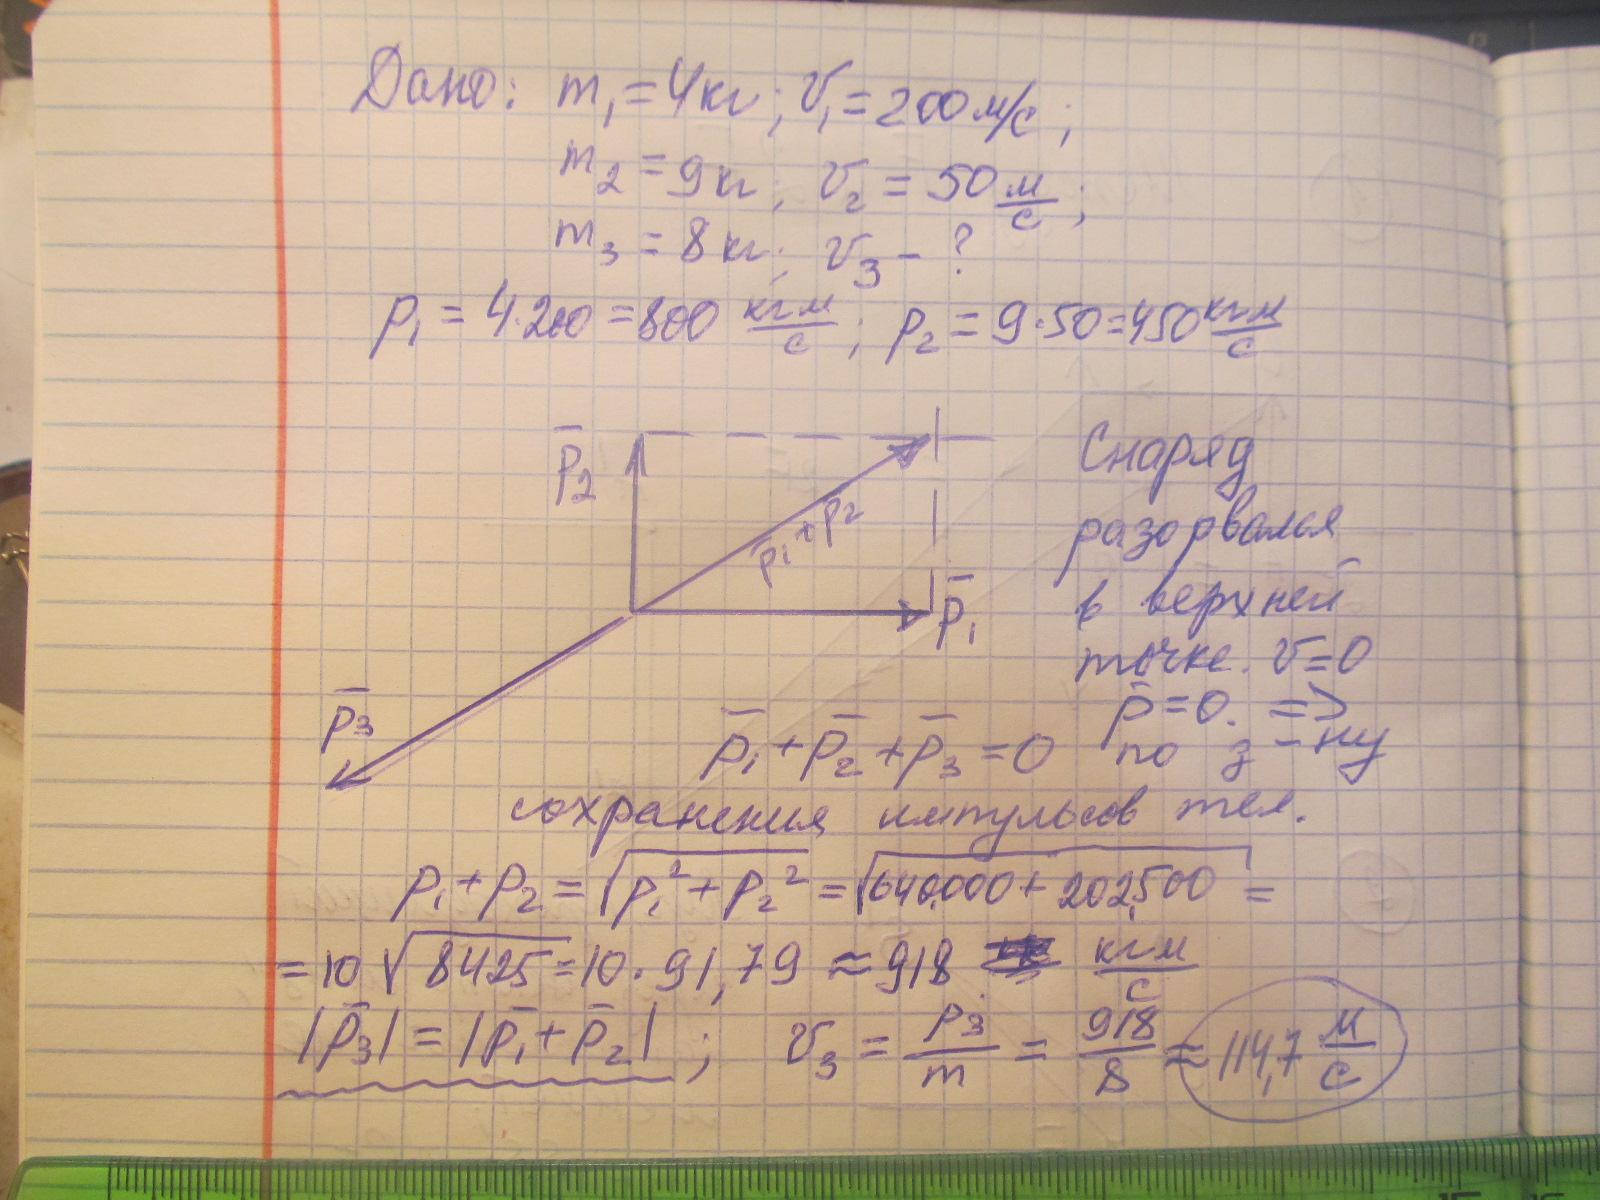 Дано: m₁ = 4кг; v₁ = 200 м/с;
m₂ = 9кг; v₂ = 50 м/с;
m₃ = 8кг; v₃ - ?
p₁ = 4·200 = 800 кгм/с; p₂ = 9·50 = 450 кгм/с
p̄₂
p̄₁+p̄₂
p̄₁
p̄₃
Снаряд
разорвалья
в верхней
точке. v=0
p̄=0. =>
p̄₁ + p̄₂ + p̄₃ = 0 по з-ну
сохранения импульсов тел.
p₁ + p₂ = √(p₁² + p₂²) = √(640.000 + 202.500) =
= 10 √8425 = 10·91,79 ≈ 918 кгм/с
|p̄₃| = |p̄₁ + p̄₂|; v₃ = p₃/m = 918/8 ≈ 114,7 м/с